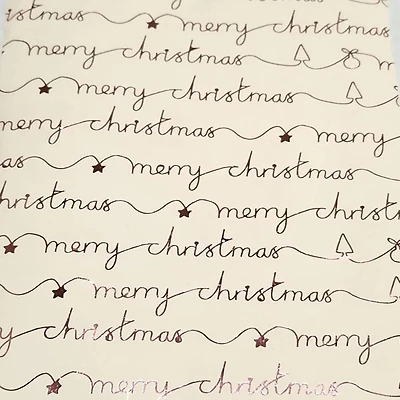 istmas merry christmas
merry christmas m
merry christmas
merry christmas merry
as merry christmas
christmas merry christ
merry christmas
merry christmas
y christmas merry
merry christmas